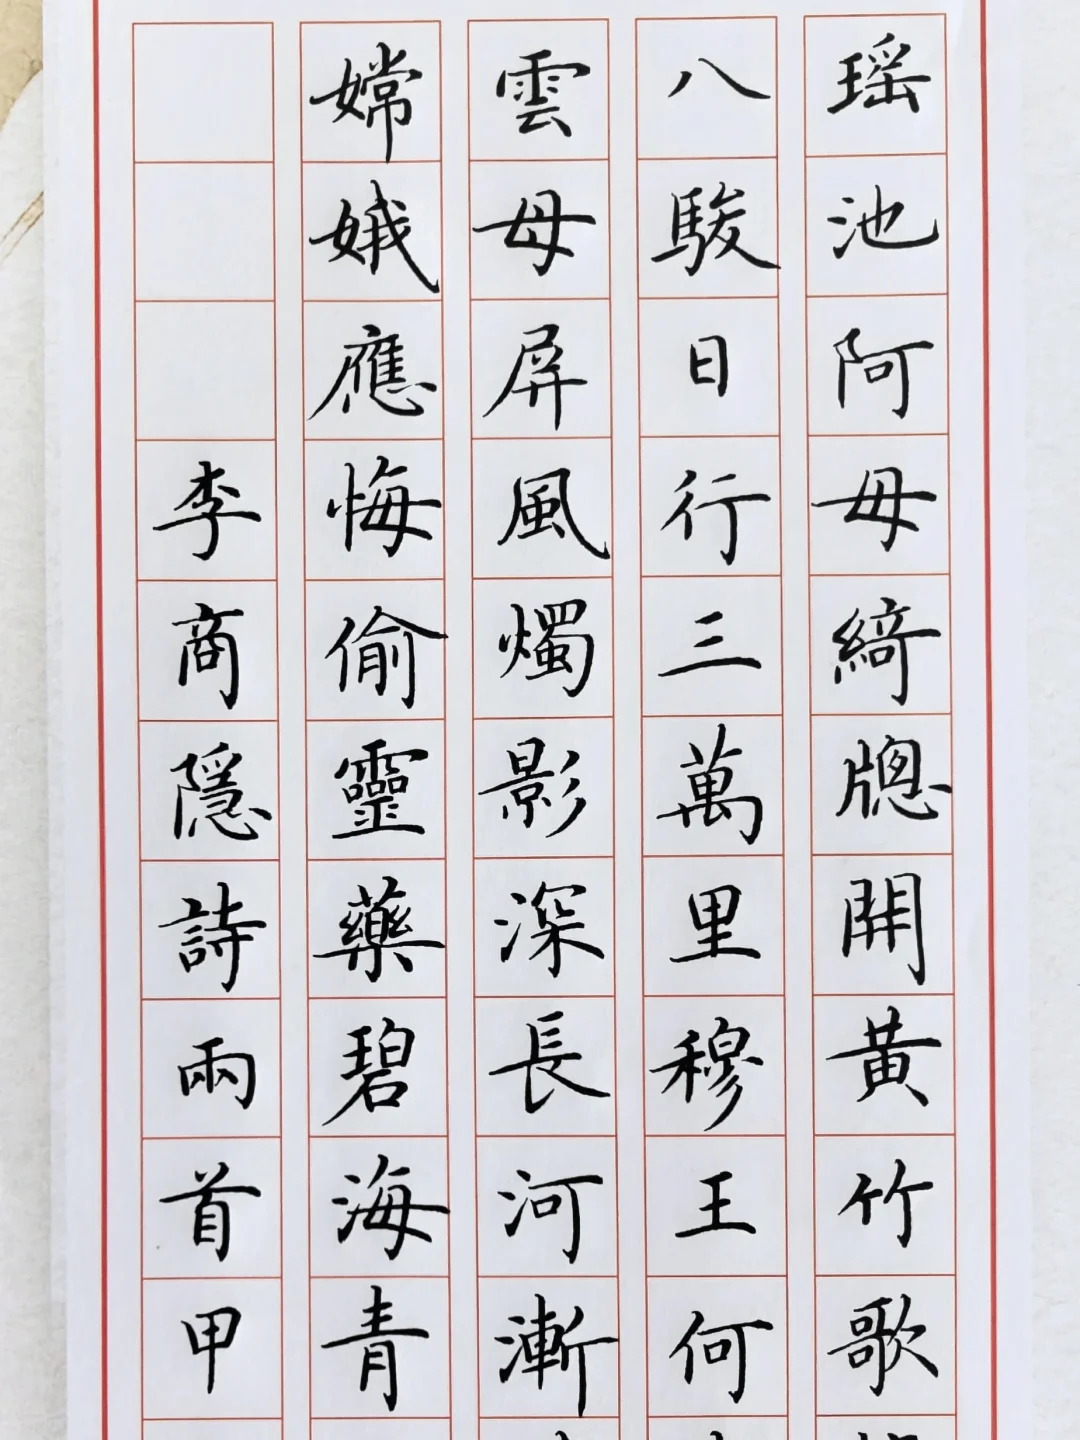 瑶池阿母綺牎開黃竹歌
八駿日行三萬里穆王何
雲母屏風燭影深長河漸
嫦娥應悔偷靈藥碧海青
李商隱詩兩首甲